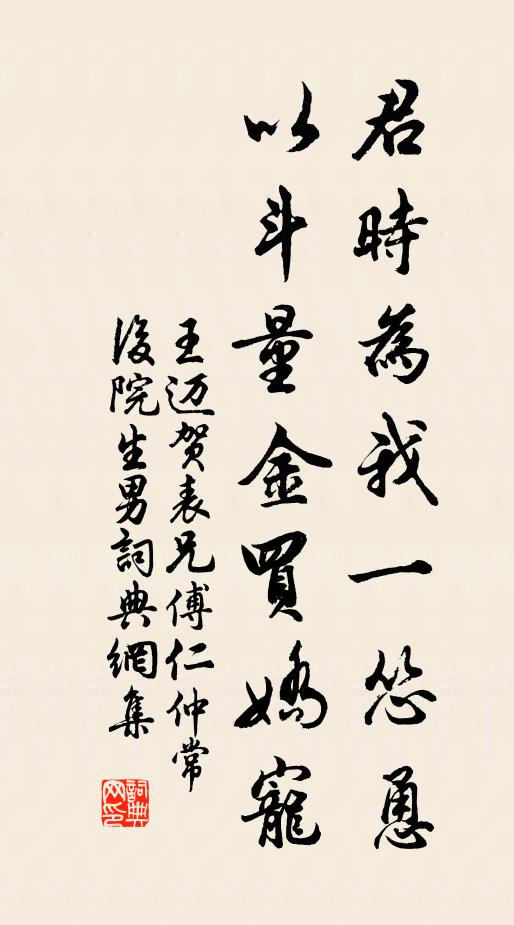 君時為我一慫恿
以斗量金買嬌寵
王迈贺表兄傅仁仲常
後院生男詞典網集
詞典网印